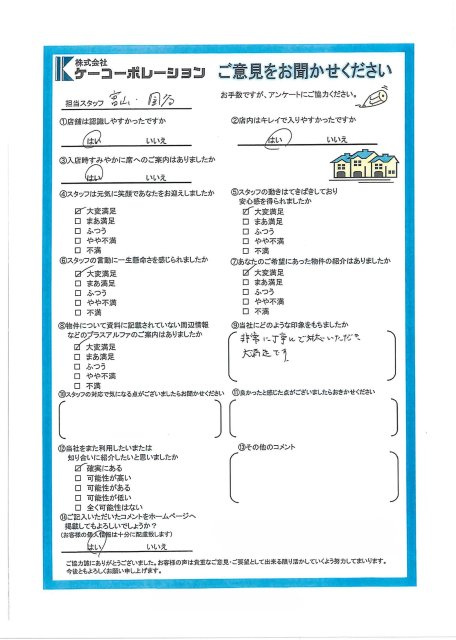 株式会社
ケーコーポレーション
ご意見をお聞かせください
担当スタッフ 富山・国分
お手数ですが、アンケートにご協力ください。
①店舗は認識しやすかったですか
はい いいえ
②店内はキレイで入りやすかったですか
はい いいえ
③入店時すみやかに席へのご案内はありましたか
はい いいえ
④スタッフは元気に笑顔であなたをお迎えしましたか
☑ 大変満足
□ まあ満足
□ ふつう
□ やや不満
□ 不満
⑤スタッフの動きはてきぱきしており
安心感を得られましたか
☑ 大変満足
□ まあ満足
□ ふつう
□ やや不満
□ 不満
⑥スタッフの言動に一生懸命さを感じられましたか
☑ 大変満足
□ まあ満足
□ ふつう
□ やや不満
□ 不満
⑦あなたのご希望にあった物件の紹介はありましたか
☑ 大変満足
□ まあ満足
□ ふつう
□ やや不満
□ 不満
⑧物件について資料に記載されていない周辺情報
などのプラスアルファのご案内はありましたか
☑ 大変満足
□ まあ満足
□ ふつう
□ やや不満
□ 不満
⑨当社にどのような印象をもちましたか
非常に丁寧にご対応いただき
大満足です
⑩スタッフの対応で気になる点がございましたらお聞かせください
⑪良かったと感じた点がございましたらおきかせください
⑫当社をまた利用したいまたは
知り合いに紹介したいと思いましたか
☑ 確実にある
□ 可能性が高い
□ 可能性がある
□ 可能性が低い
□ 全く可能性はない
⑬その他のコメント
⑭ご記入いただいたコメントをホームページへ
掲載してもよろしいでしょうか?
(お客様の個人情報は十分に配慮致します)
はい いいえ
ご協力誠にありがとうございました。お客様の声は貴重なご意見・ご要望として出来る限り活かしていくよう努力してまいります。
今後ともよろしくお願い申し上げます。